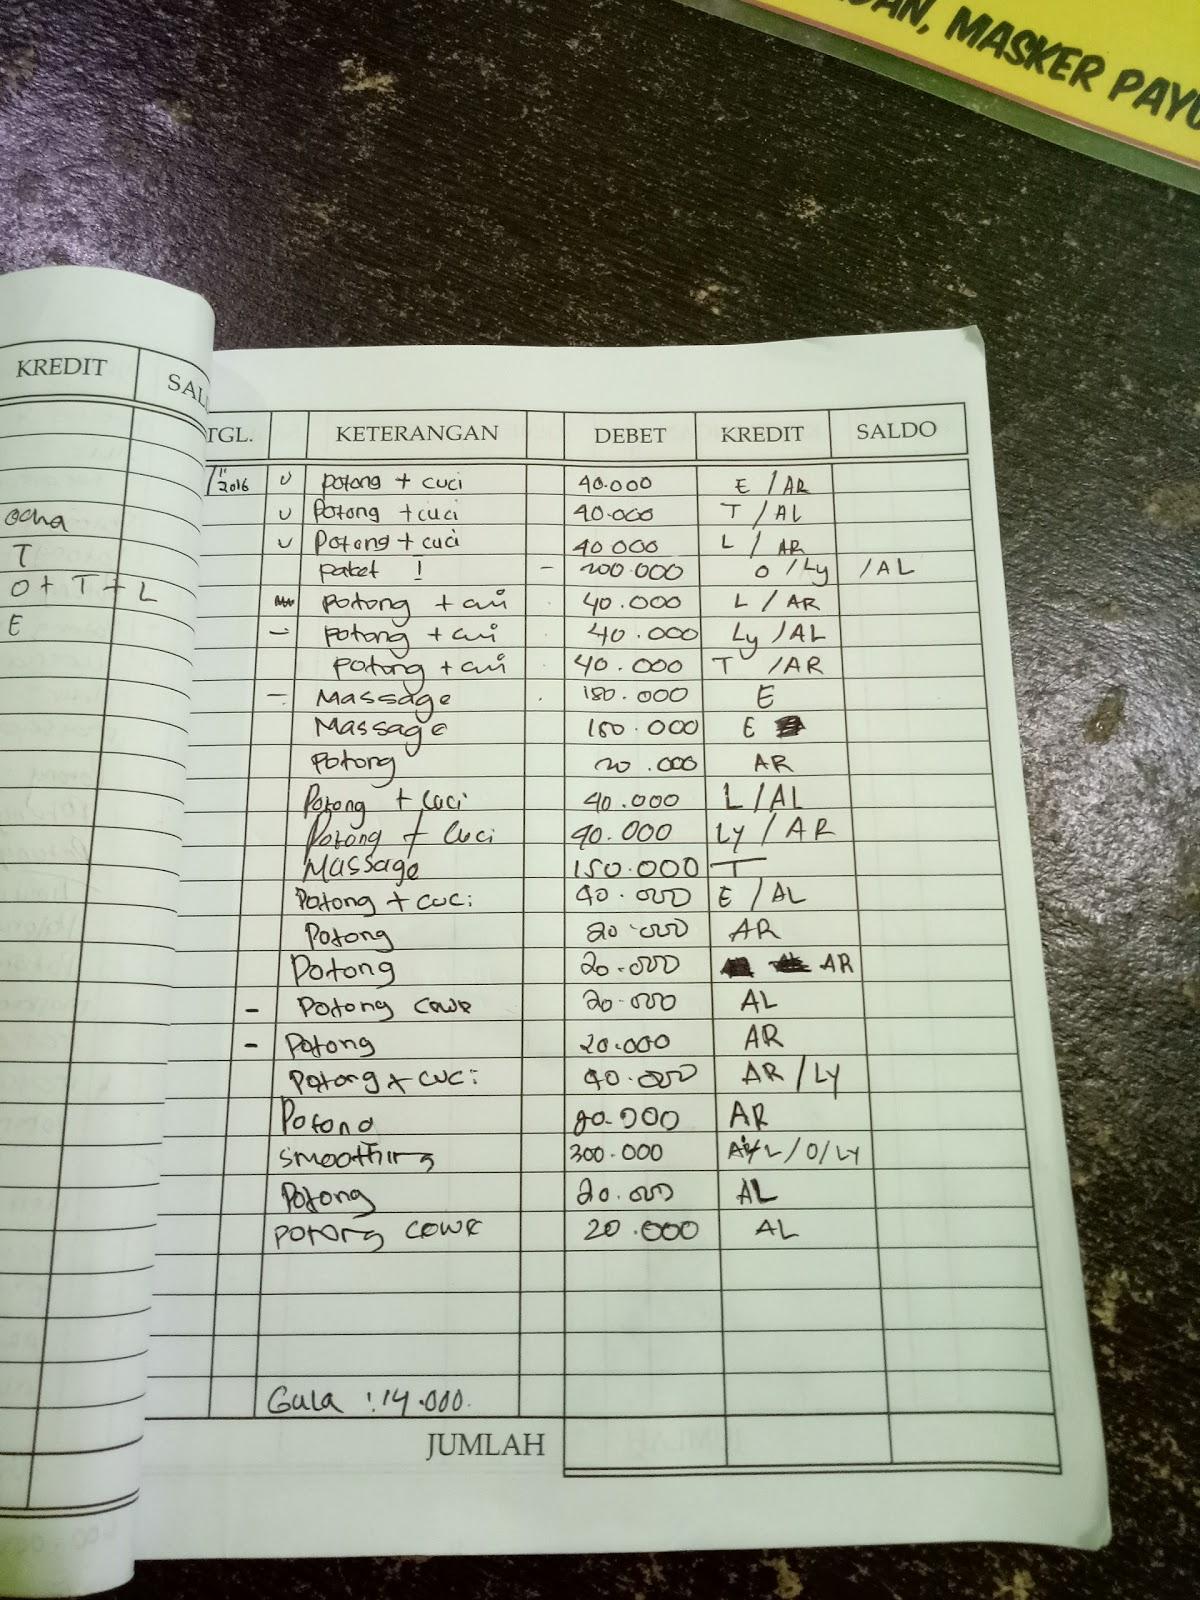 DAN, MASKER PAYU
KREDIT SAL
ocha
T
O + T + L
E
TGL. KETERANGAN DEBET KREDIT SALDO
/11 2016 potong + cuci 40.000 E / AR
Potong + cuci 40.000 T / AL
Potong + cuci 40.000 L / AR
paket ! - 200.000 O / Ly / AL
potong + cuci 40.000 L / AR
- potong + cuci 40.000 Ly / AL
potong + cuci 40.000 T / AR
- Massage 150.000 E
Massage 150.000 E
Potong 20.000 AR
Potong + Cuci 40.000 L / AL
Potong + Cuci 40.000 LY / AR
Massage 150.000 T
Potong + cuci 40.000 E / AL
Potong 20.000 AR
Potong 20.000 AR
- Potong cowk 20.000 AL
- Potong 20.000 AR
Potong + cuci 40.000 AR / LY
Potong 20.000 AR
Smoothing 300.000 L / O / LY
Potong 20.000 AL
potong cowk 20.000 AL
Gula : 14.000.
JUMLAH